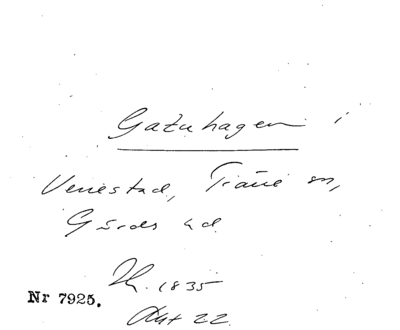 Gatuhagen i
Venestad, Träne sn,
Gärds hd
Th. 1835
Akt 22
Nr 7925.